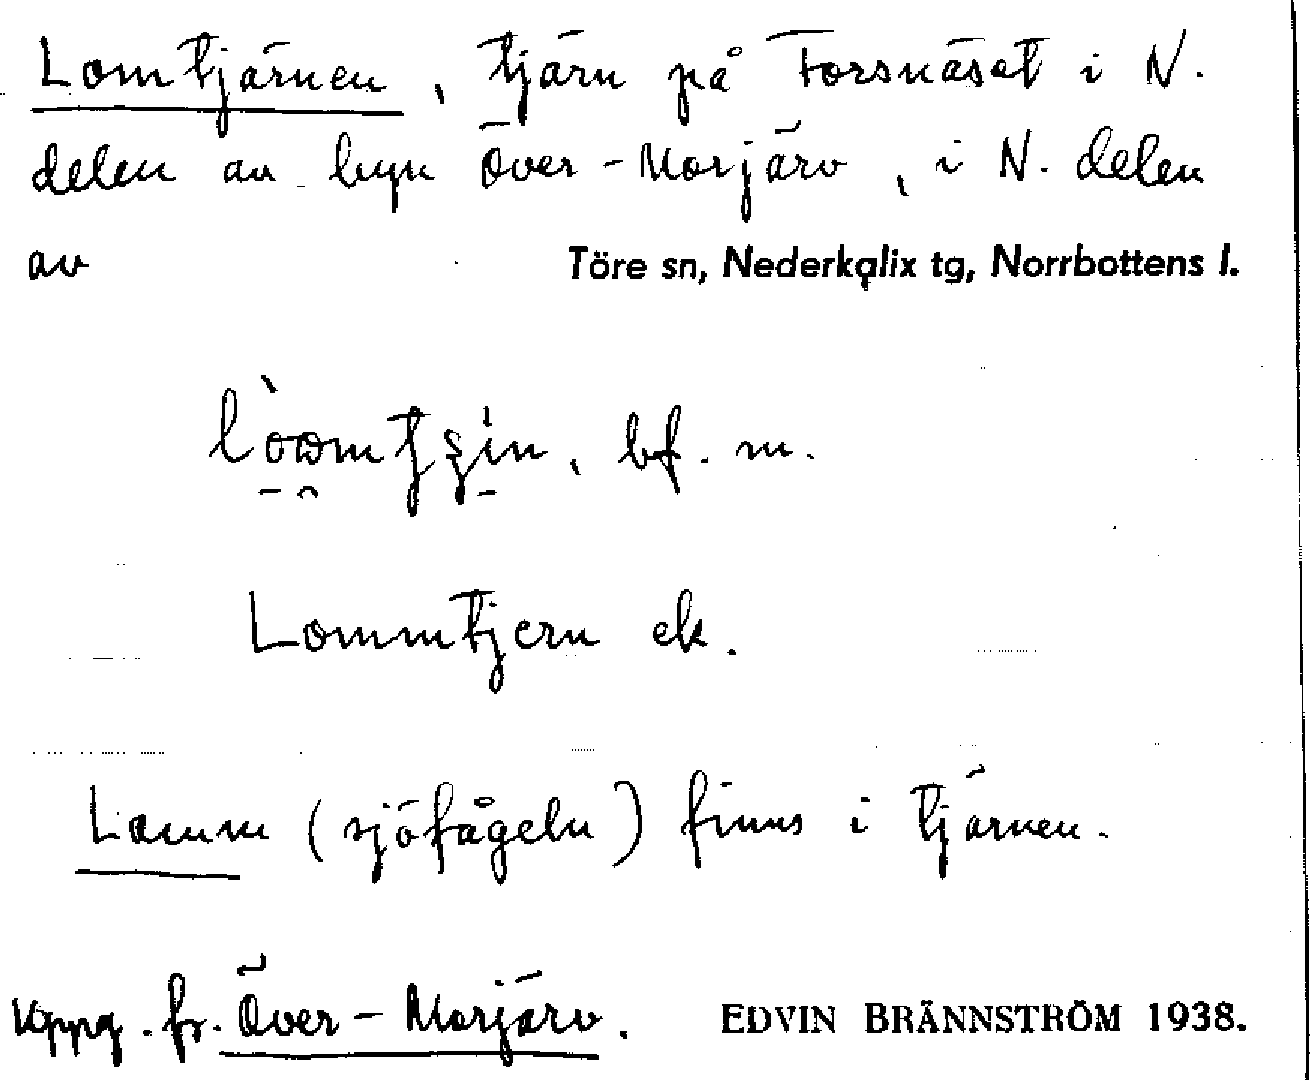 Lomtjärnen, tjärn på Forsnäset i N.
delen av byn Över-Morjärv, i N. delen
av Töre sn, Nederkalix tg, Norrbottens l.
bf. m.
Lommtjern ek.
Lomm (sjöfågeln) finns i tjärnen.
Uppg. fr. Över-Morjärv. EDVIN BRÄNNSTRÖM 1938.